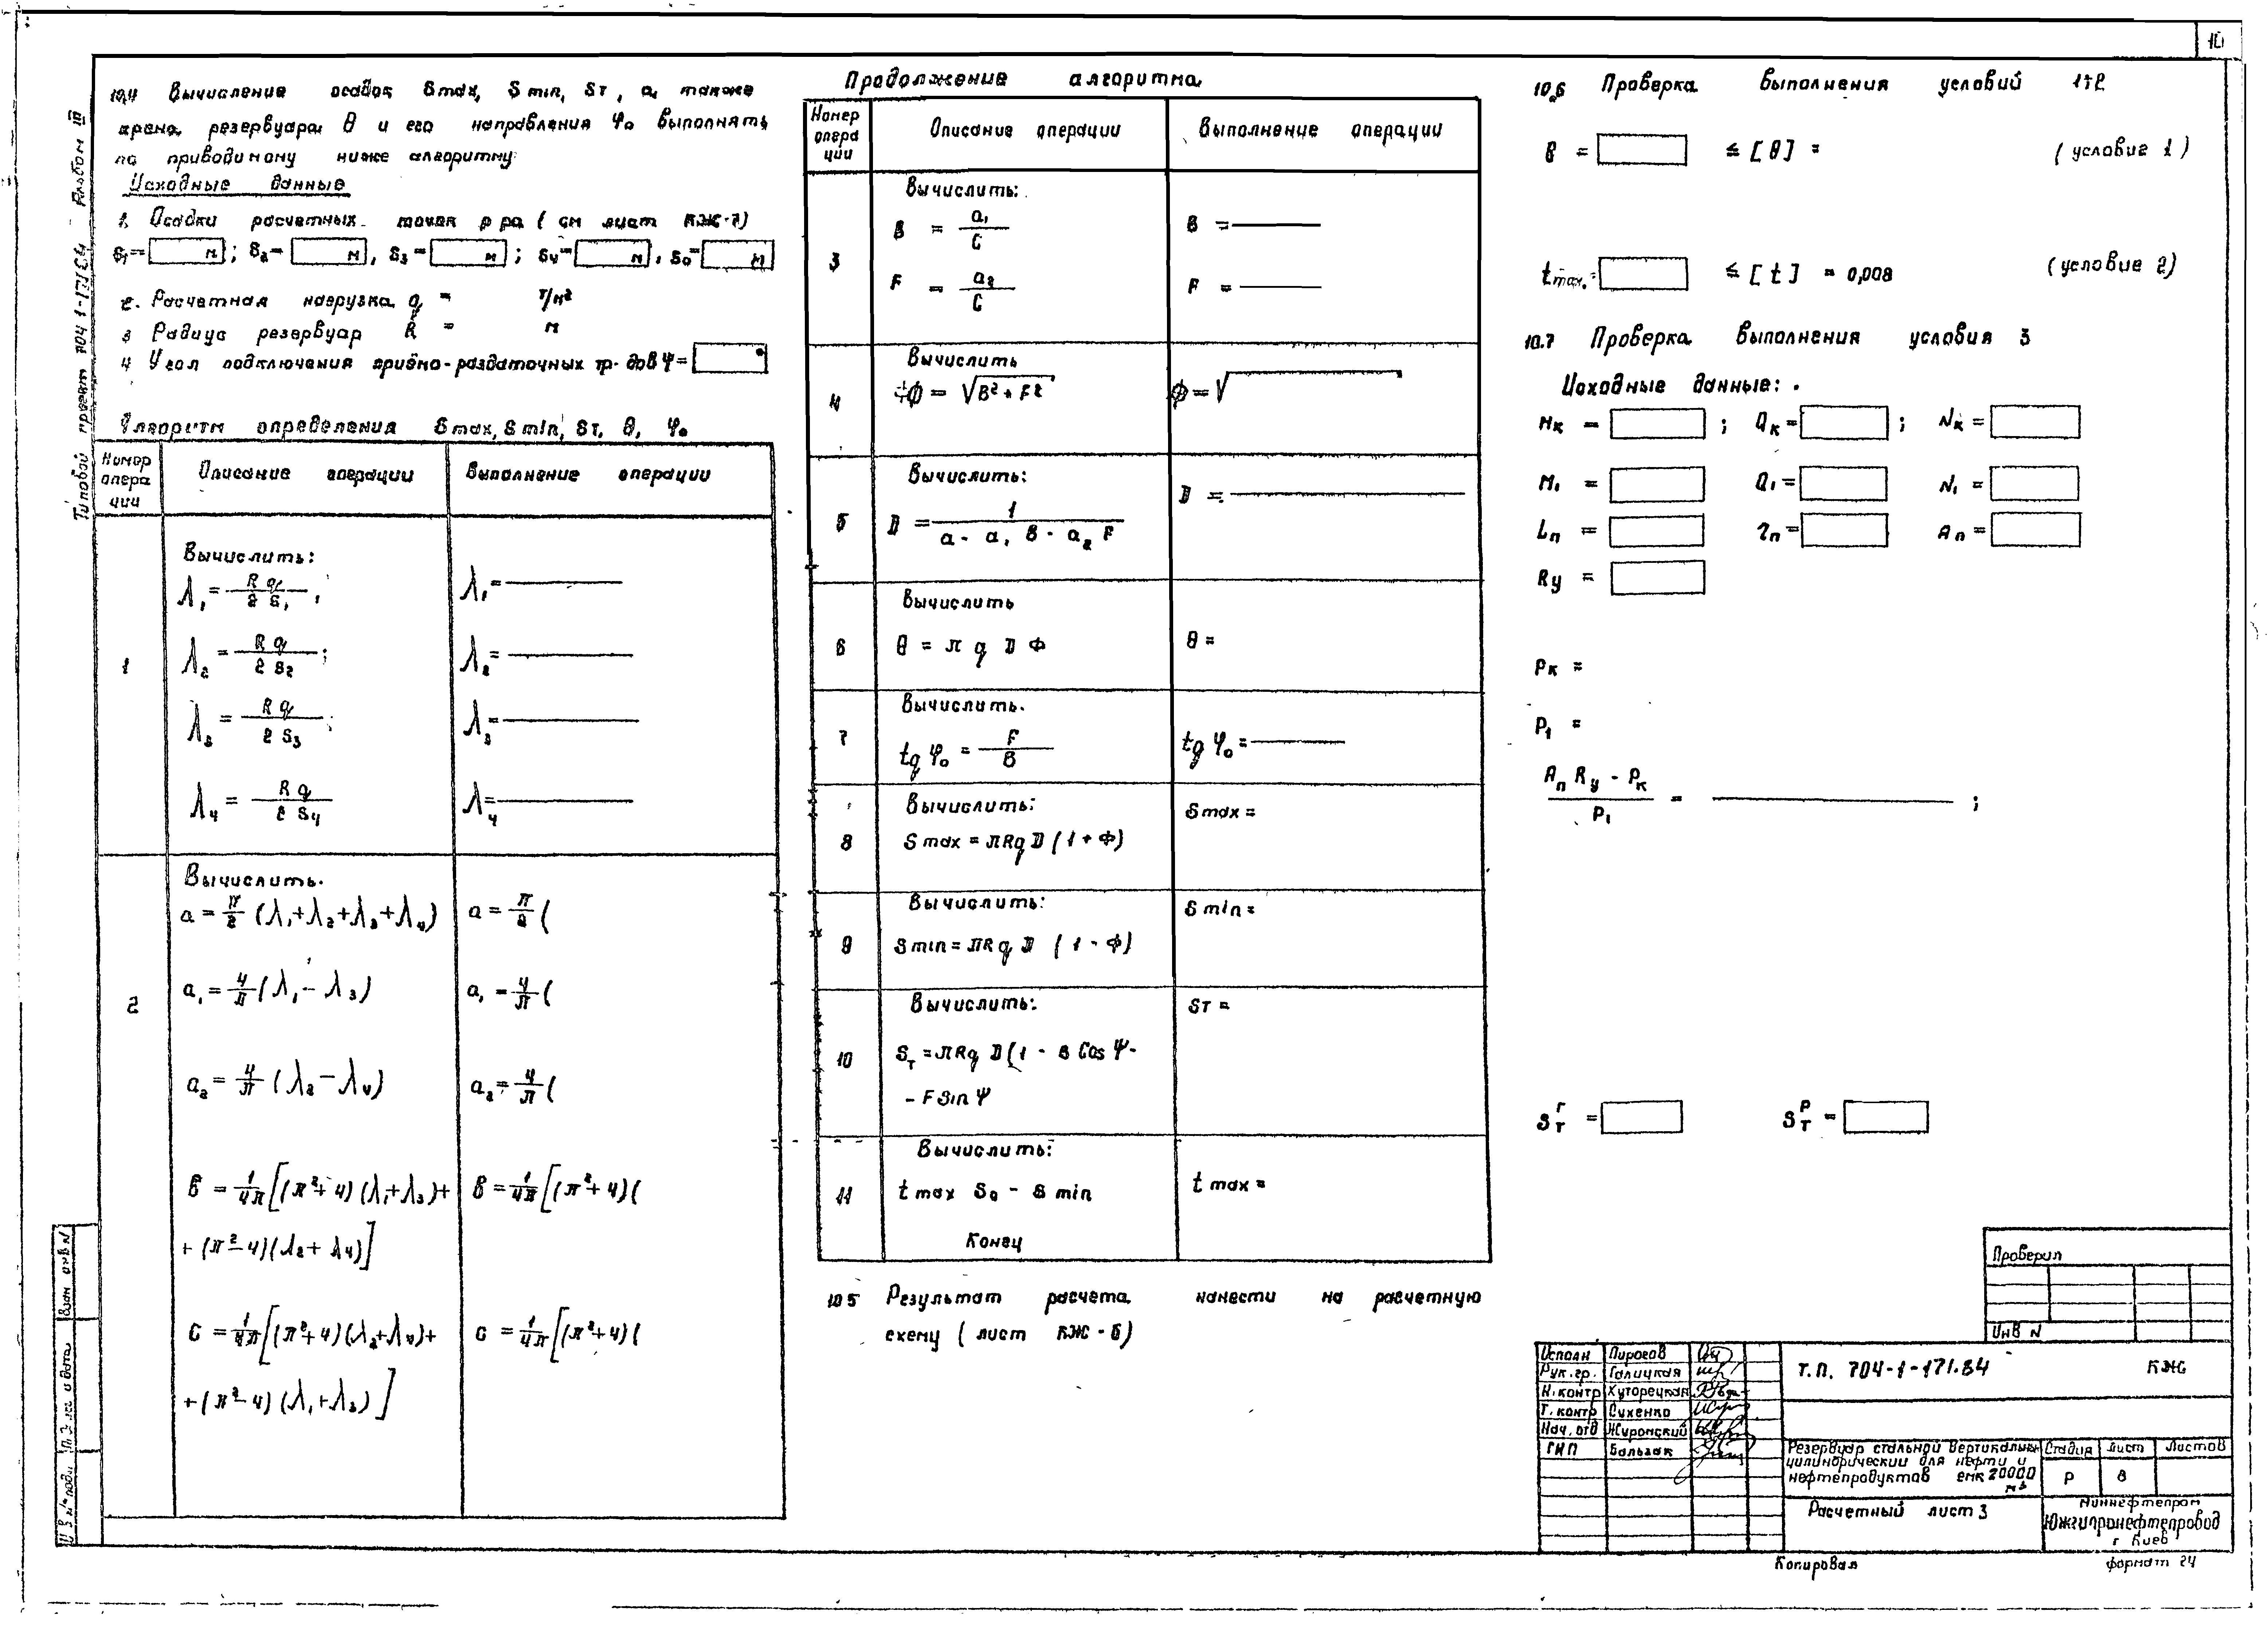 10
Типовой проект 704-1-171.84 Альбом III
10.4 Вычисление осадок Smax, Smin, Sт, а также
крена резервуара θ и его направления φ₀ выполнять
по приводимому ниже алгоритму:
Исходные данные
1. Осадки расчетных точек р-ра (см лист КЖ-7)
S₁= м; S₂= м, S₃= м; S₄= м, S₀= м
2. Расчетная нагрузка q = т/м²
3 Радиус резервуар R = м
4 Угол подключения приёмо-раздаточных тр-дов Ψ= °
Алгоритм определения Smax, Smin, Sт, θ, φ₀
Номер операции
Описание операции
Выполнение операции
1
Вычислить:
λ₁ = R q / 2 S₁,
λ₂ = R q / 2 S₂;
λ₃ = R q / 2 S₃;
λ₄ = R q / 2 S₄
λ₁=
λ₂=
λ₃=
λ₄=
2
Вычислить.
a = π/2 (λ₁+λ₂+λ₃+λ₄)
a₁ = 4/π (λ₁ - λ₃)
a₂ = 4/π (λ₂ - λ₄)
B = 1/4π [(π²+4)(λ₁+λ₃)+
+ (π²-4)(λ₂+λ₄)]
C = 1/4π [(π²+4)(λ₂+λ₄)+
+ (π²-4)(λ₁+λ₃)]
a = π/2 (
a₁ = 4/π (
a₂ = 4/π (
B = 1/4π [(π²+4)(
C = 1/4π [(π²+4)(
Продолжение алгоритма
Номер операции
Описание операции
Выполнение операции
3
Вычислить:
B = a₁/C
F = a₂/C
B =
F =
4
Вычислить
Ф = √B² + F²
Ф = √
5
Вычислить:
D = 1 / a - a₁ B - a₂ F
D =
6
Вычислить
θ = π q D Ф
θ =
7
Вычислить.
tg φ₀ = F/B
tg φ₀ =
8
Вычислить:
Smax = πRq D (1 + Ф)
Smax =
9
Вычислить:
Smin = πRq D (1 - Ф)
Smin =
10
Вычислить:
Sт = πRq D(1 - B Cos Ψ -
- F Sin Ψ
Sт =
11
Вычислить:
t max S₀ - S min
Конец
t max =
10.5 Результат расчета нанести на расчетную
схему (лист КЖ-6)
10.6 Проверка выполнения условий 1÷2
θ = ≤ [θ] = (условие 1)
tmax. = ≤ [t] = 0,008 (условие 2)
10.7 Проверка выполнения условия 3
Исходные данные:
Mк = ; Qк = ; Nк =
M₁ = Q₁ = N₁ =
Lп = τп = Aп =
Rу =
Pк =
P₁ =
Aп Rу - Pк / P₁ = ;
Sтᴦ = Sтᴾ =
Проверил
Инв N
Исполн Пирогов
Рук.гр. Галицкая
Н.контр Хуторецкая
Т.контр Сихенко
Нач.отд Журомский
ГИП Бальзак
Т.П. 704-1-171.84 КЖ
Резервуар стальной вертикальн.
цилиндрический для нефти и
нефтепродуктов емк 20000
м³
Стадия Лист Листов
Р 8
Расчетный лист 3
Миннефтепром
Южгипронефтепровод
г Киев
Копировал
формат 24
Взам инв N